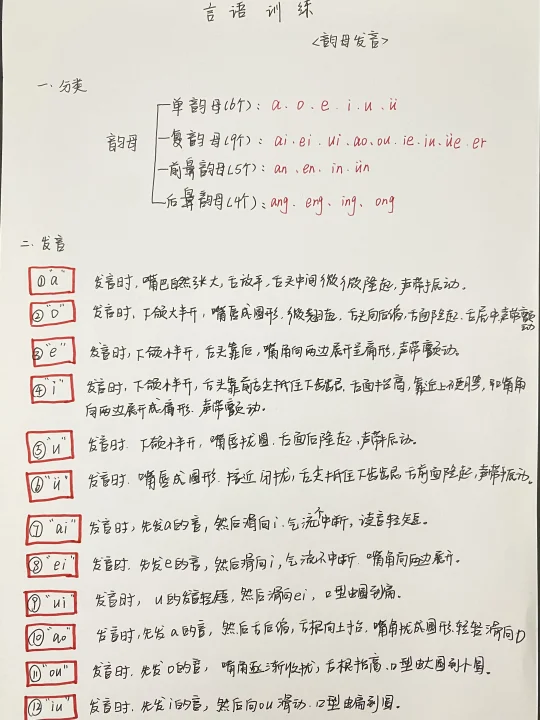 言语训练
<韵母发音>
一.分类
单韵母(6个): a、o、e、i、u、ü
韵母
复韵母(9个): ai、ei、ui、ao、ou、ie、iu、üe、er
前鼻韵母(5个): an、en、in、ün
后鼻韵母(4个): ang、eng、ing、ong
二.发音
①"a" 发音时,嘴巴自然张大,舌放平,舌头中间微微隆起,声带振动。
②"o" 发音时,下颌半开,嘴唇成圆形,微翘起,舌头向后缩,舌面隆起,舌居中声带颤
动
③"e" 发音时,下颌半开,舌头靠后,嘴角向两边展开呈扁形,声带颤动。
④"i" 发音时,下颌半开,舌头靠前舌尖抵住下齿龈,舌面抬高,靠近上硬腭,嘴角
向两边展开成扁形.声带颤动。
⑤"u" 发音时.下颌半开,嘴唇拢圆.舌面后隆起,声带振动。
⑥"ü" 发音时.嘴唇成圆形.接近闭拢,舌尖抵住下齿龈舌前面隆起,声带振动。
⑦"ai" 发音时,先发a的音,然后滑向i.气流不中断,读音轻短。
⑧"ei" 发音时.先发e的音,然后滑向i,气流不中断.嘴角向两边展开。
⑨"ui" 发音时,u的发音轻短,然后滑向ei,口型由圆到扁。
⑩"ao" 发音时,先发a的音,然后舌后缩,舌根向上抬,嘴角拢成圆形,轻轻滑向O
⑪"ou" 发音时.先发o的音,嘴角逐渐收拢,舌根抬高.口型由大圆到小圆。
⑫"iu" 发音时,先发i的音,然后向ou滑动.口型由扁到圆。